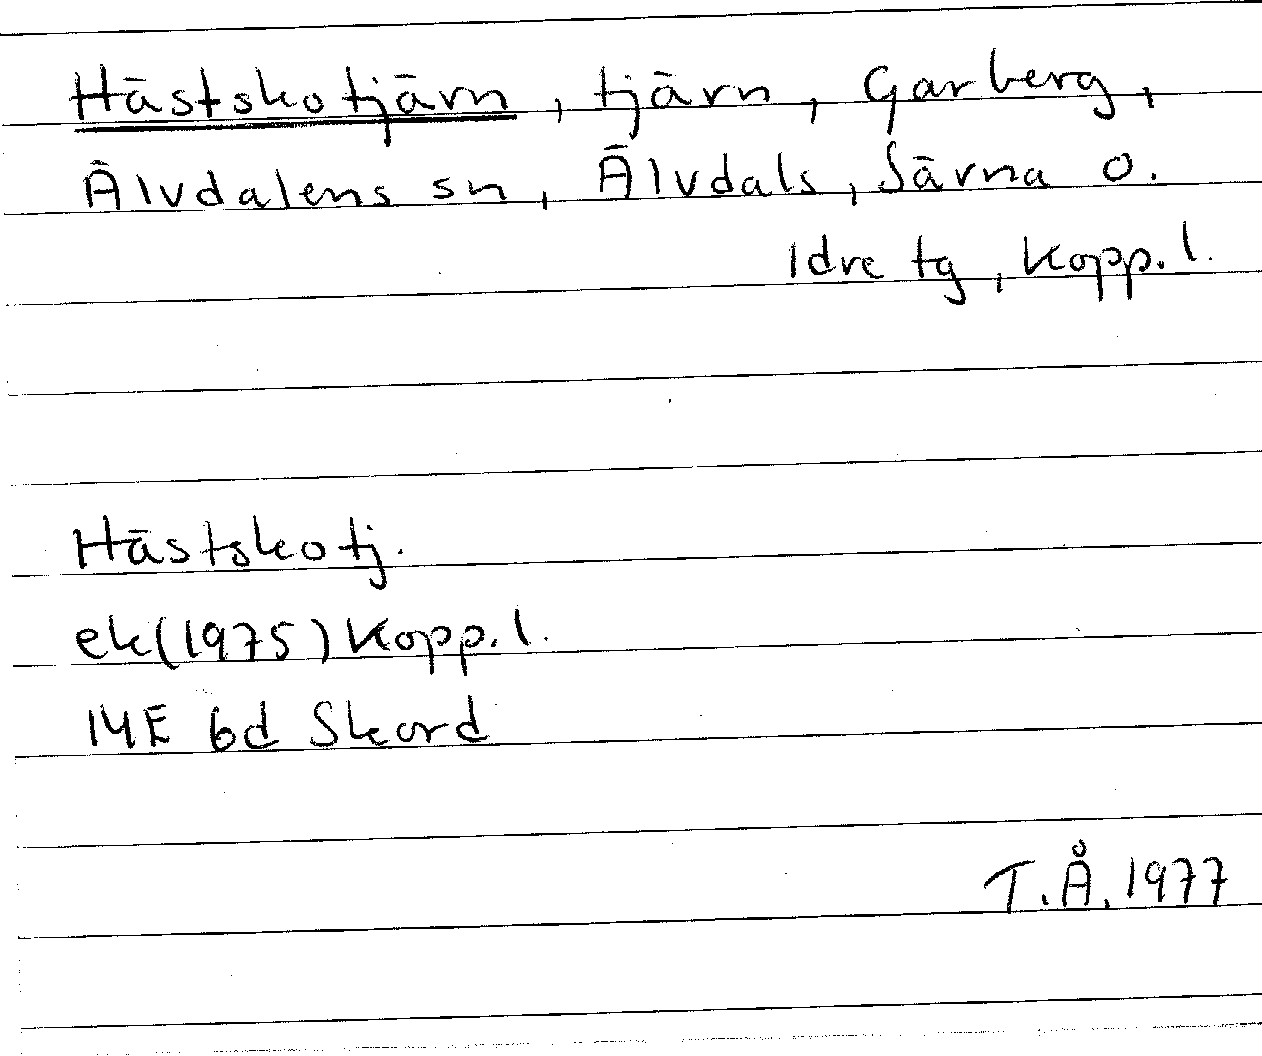 Hästskotjärn, tjärn, Garberg,
Älvdalens sn, Älvdals, Särna o.
Idre tg, Kopp.l.
Hästskotj.
ek(1975) Kopp.l.
14E 6d Skord
T.Å. 1977